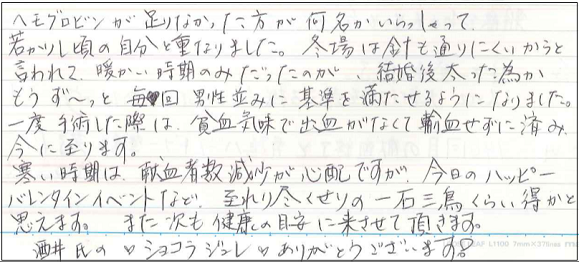 ヘモグロビンが足りなかった方が何名かいらっしゃって
若かりし頃の自分と重なりました。冬場は針も通りにくいからと
言われて、暖かい時期のみだったのが、結婚後太った為か
もうず〜っと毎回男性並みに基準を満たせるようになりました。
一度手術した際は、貧血気味で出血がなくて輸血せずに済み、
今に至ります。
寒い時期は、献血者数減少が心配ですが、今日のハッピー
バレンタインイベントなど、至れり尽くせりの一石三鳥くらい得かと
思えます。また次も健康の目安に来させて頂きます。
酒井氏の♡ショコラジュレ♡ありがとうございます。
7mm×37